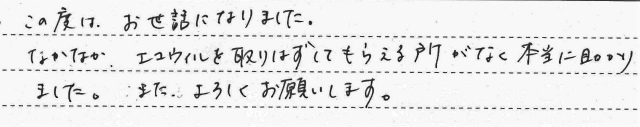 この度は、お世話になりました。
なかなか エコウィルを取りはずしてもらえる所がなく 本当に助かり
ました。また、よろしくお願いします。